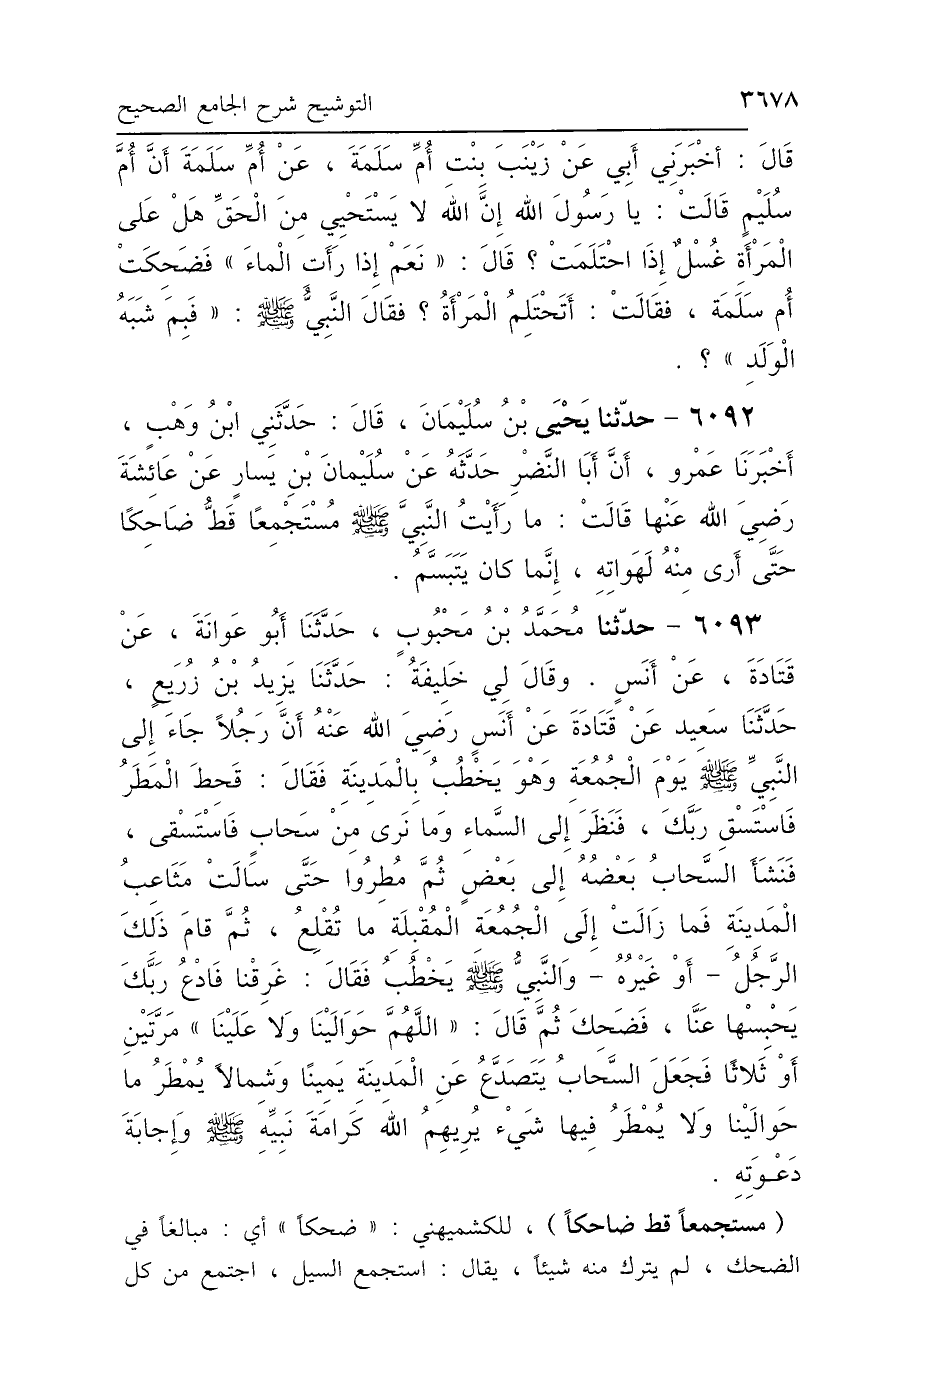 ٣٦٧٨ التوشيح شرح الجامع الصحيح
قَالَ : أخْبَرَنِي أَبِي عَنْ زَيْنَبَ بِنْتِ أُمِّ سَلَمَةَ ، عَنْ أُمِّ سَلَمَةَ أَنَّ أُمَّ
سُلَيْمٍ قَالَتْ : يا رَسُولَ الله إِنَّ الله لا يَسْتَحْيِي مِنَ الْحَقِّ هَلْ عَلى
الْمَرْأَةِ غُسْلٌ إِذَا احْتَلَمَتْ ؟ قَالَ : « نَعَمْ إِذا رَأَتِ الْماءَ » فَضَحِكَتْ
أُم سَلَمَة ، فقَالَتْ : أَتَحْتَلِمُ الْمَرْأَةُ ؟ فقَالَ النَّبِيُّ ﷺ : « فَبِمَ شَبَهُ
الْوَلَدِ » ؟ .
٦٠٩٢ - حدّثنا يَحْيَى بْنُ سُلَيْمَانَ ، قَالَ : حَدَّثَنِي ابْنُ وَهْبٍ ،
أَخْبَرَنَا عَمْرو ، أَنَّ أَبَا النَّضْرِ حَدَّثَهُ عَنْ سُلَيْمانَ بْنِ يَسارٍ عَنْ عَائِشَةَ
رَضِيَ الله عَنْها قَالَتْ : ما رَأَيْتُ النَّبِيَّ ﷺ مُسْتَجْمِعًا قَطُّ ضَاحِكًا
حَتَّى أَرى مِنْهُ لَهَوَاتِهِ ، إِنَّما كان يَتَبَسَّمُ .
٦٠٩٣ - حدّثنا مُحَمَّدُ بْنُ مَحْبُوبٍ ، حَدَّثَنَا أَبُو عَوانَةَ ، عَنْ
قَتَادَةَ ، عَنْ أَنَسٍ . وقَالَ لِي خَلِيفَةُ : حَدَّثَنَا يَزِيدُ بْنُ زُرَيعٍ ،
حَدَّثَنَا سَعِيد عَنْ قَتَادَةَ عَنْ أَنَسٍ رَضِيَ الله عَنْهُ أَنَّ رَجُلاً جَاءَ إِلى
النَّبِيِّ ﷺ يَوْمَ الْجُمُعَةِ وَهْوَ يَخْطُبُ بِالْمَدِينَةِ فَقَالَ : قَحطَ الْمَطَرُ
فَاسْتَسْقِ رَبَّكَ ، فَنَظَرَ إِلى السَّماءِ وَما نَرى مِنْ سَحابٍ فَاسْتَسْقى ،
فَنَشَأَ السَّحابُ بَعْضُهُ إِلى بَعْضٍ ثُمَّ مُطِرُوا حَتَّى سَالَتْ مَثَاعِبُ
الْمَدِينَةِ فَما زَالَتْ إِلَى الْجُمُعَةِ الْمُقْبِلَةِ ما تُقْلِعُ ، ثُمَّ قامَ ذَلِكَ
الرَّجُلُ - أَوْ غَيْرُهُ - وَالنَّبِيُّ ﷺ يَخْطُبُ فَقَالَ : غَرِقْنا فَادْعُ رَبَّكَ
يَحْبِسْها عَنَّا ، فَضَحِكَ ثُمَّ قَالَ : « اللَّهُمَّ حَوَالَيْنَا وَلا عَلَيْنَا » مَرَّتَيْنِ
أَوْ ثَلاثًا فَجَعَلَ السَّحابُ يَتَصَدَّعُ عَنِ الْمَدِينَةِ يَمِينًا وشِمالاً يُمْطَرُ ما
حَوَالَيْنا وَلا يُمْطَرُ فِيها شَيْء يُرِيهِمُ الله كَرَامَةَ نَبِيِّهِ ﷺ وَإِجابَةَ
دَعْوَتِهِ .
( مستجمعاً قط ضاحكاً ) ، للكشميهني : « ضحكاً » أي : مبالغاً في
الضحك ، لم يترك منه شيئاً ، يقال : استجمع السيل ، اجتمع من كل